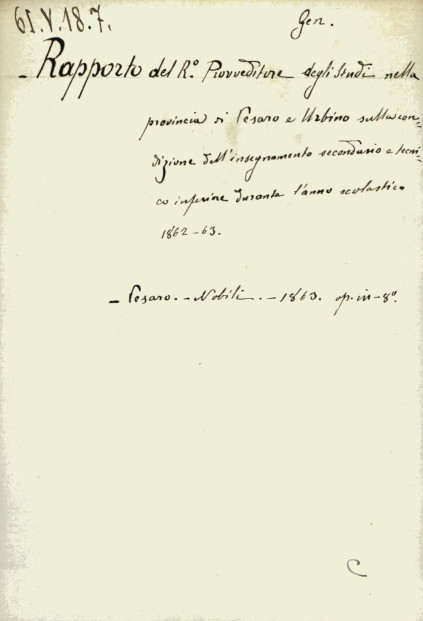 61.V.18.7.
Gen.
- Rapporto del R.º Provveditore degli Studi nella
provincia di Pesaro e Urbino sulla con=
dizione dell'insegnamento secondario e tecni=
co inferiore durante l'anno scolastico
1862-63.
- Pesaro. - Nobili. - 1863. op. in-8º.
C